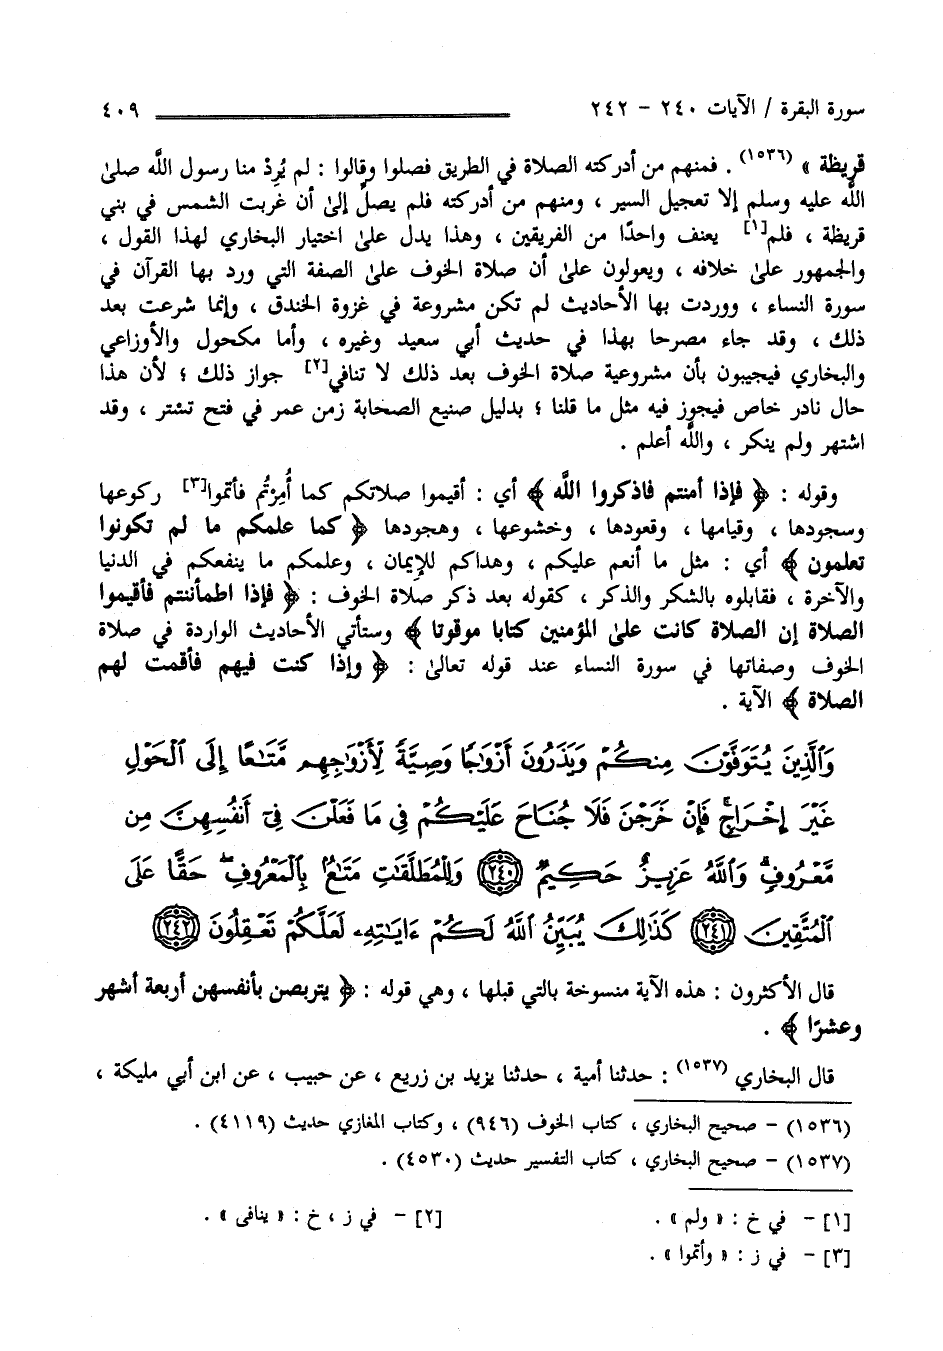 سورة البقرة / الآيات ٢٤٠ – ٢٤٢ ٤٠٩
قريظة » (١٥٣٦) . فمنهم من أدركته الصلاة في الطريق فصلوا وقالوا : لم يُرِدْ منا رسول اللَّه صلىٰ
اللَّه عليه وسلم إلا تعجيل السير ، ومنهم من أدركته فلم يصلِّ إلىٰ أن غربت الشمس في بني
قريظة ، فلم[١] يعنف واحدًا من الفريقين ، وهذا يدل علىٰ اختيار البخاري لهذا القول ،
والجمهور علىٰ خلافه ، ويعولون علىٰ أن صلاة الخوف علىٰ الصفة التي ورد بها القرآن في
سورة النساء ، ووردت بها الأحاديث لم تكن مشروعة في غزوة الخندق ، وإنما شرعت بعد
ذلك ، وقد جاء مصرحا بهذا في حديث أبي سعيد وغيره ، وأما مكحول والأوزاعي
والبخاري فيجيبون بأن مشروعية صلاة الخوف بعد ذلك لا تنافي[٢] جواز ذلك ؛ لأن هذا
حال نادر خاص فيجوز فيه مثل ما قلنا ؛ بدليل صنيع الصحابة زمن عمر في فتح تشتر ، وقد
اشتهر ولم ينكر ، واللَّه أعلم .
وقوله : ﴿ فإذا أمنتم فاذكروا اللَّه ﴾ أي : أقيموا صلاتكم كما أُمِرْتُم فأتموا[٣] ركوعها
وسجودها ، وقيامها ، وقعودها ، وخشوعها ، وهجودها ﴿ كما علمكم ما لم تكونوا
تعلمون ﴾ أي : مثل ما أنعم عليكم ، وهداكم للإيمان ، وعلمكم ما ينفعكم في الدنيا
والآخرة ، فقابلوه بالشكر والذكر ، كقوله بعد ذكر صلاة الخوف : ﴿ فإذا اطمأننتم فأقيموا
الصلاة إن الصلاة كانت علىٰ المؤمنين كتابا موقوتا ﴾ وستأتي الأحاديث الواردة في صلاة
الخوف وصفاتها في سورة النساء عند قوله تعالىٰ : ﴿ وإذا كنت فيهم فأقمت لهم
الصلاة ﴾ الآية .
وَٱلَّذِينَ يُتَوَفَّوْنَ مِنكُمْ وَيَذَرُونَ أَزْوَٰجًا وَصِيَّةً لِّأَزْوَٰجِهِم مَّتَـٰعًا إِلَى ٱلْحَوْلِ
غَيْرَ إِخْرَاجٍۚ فَإِنْ خَرَجْنَ فَلَا جُنَاحَ عَلَيْكُمْ فِى مَا فَعَلْنَ فِىٓ أَنفُسِهِنَّ مِن
مَّعْرُوفٍۗ وَٱللَّهُ عَزِيزٌ حَكِيمٌ ﴿٢٤٠﴾ وَلِلْمُطَلَّقَـٰتِ مَتَـٰعٌۢ بِٱلْمَعْرُوفِۖ حَقًّا عَلَى
ٱلْمُتَّقِينَ ﴿٢٤١﴾ كَذَٰلِكَ يُبَيِّنُ ٱللَّهُ لَكُمْ ءَايَـٰتِهِۦ لَعَلَّكُمْ تَعْقِلُونَ ﴿٢٤٢﴾
قال الأكثرون : هذه الآية منسوخة بالتي قبلها ، وهي قوله : ﴿ يتربصن بأنفسهن أربعة أشهر
وعشرًا ﴾ .
قال البخاري (١٥٣٧) : حدثنا أمية ، حدثنا يزيد بن زريع ، عن حبيب ، عن ابن أبي مليكة ،
(١٥٣٦) – صحيح البخاري ، كتاب الخوف (٩٤٦) ، وكتاب المغازي حديث (٤١١٩) .
(١٥٣٧) – صحيح البخاري ، كتاب التفسير حديث (٤٥٣٠) .
[١] – في خ : « ولم » . [٢] – في ز ، خ : « ينافى » .
[٣] – في ز : « وأتموا » .